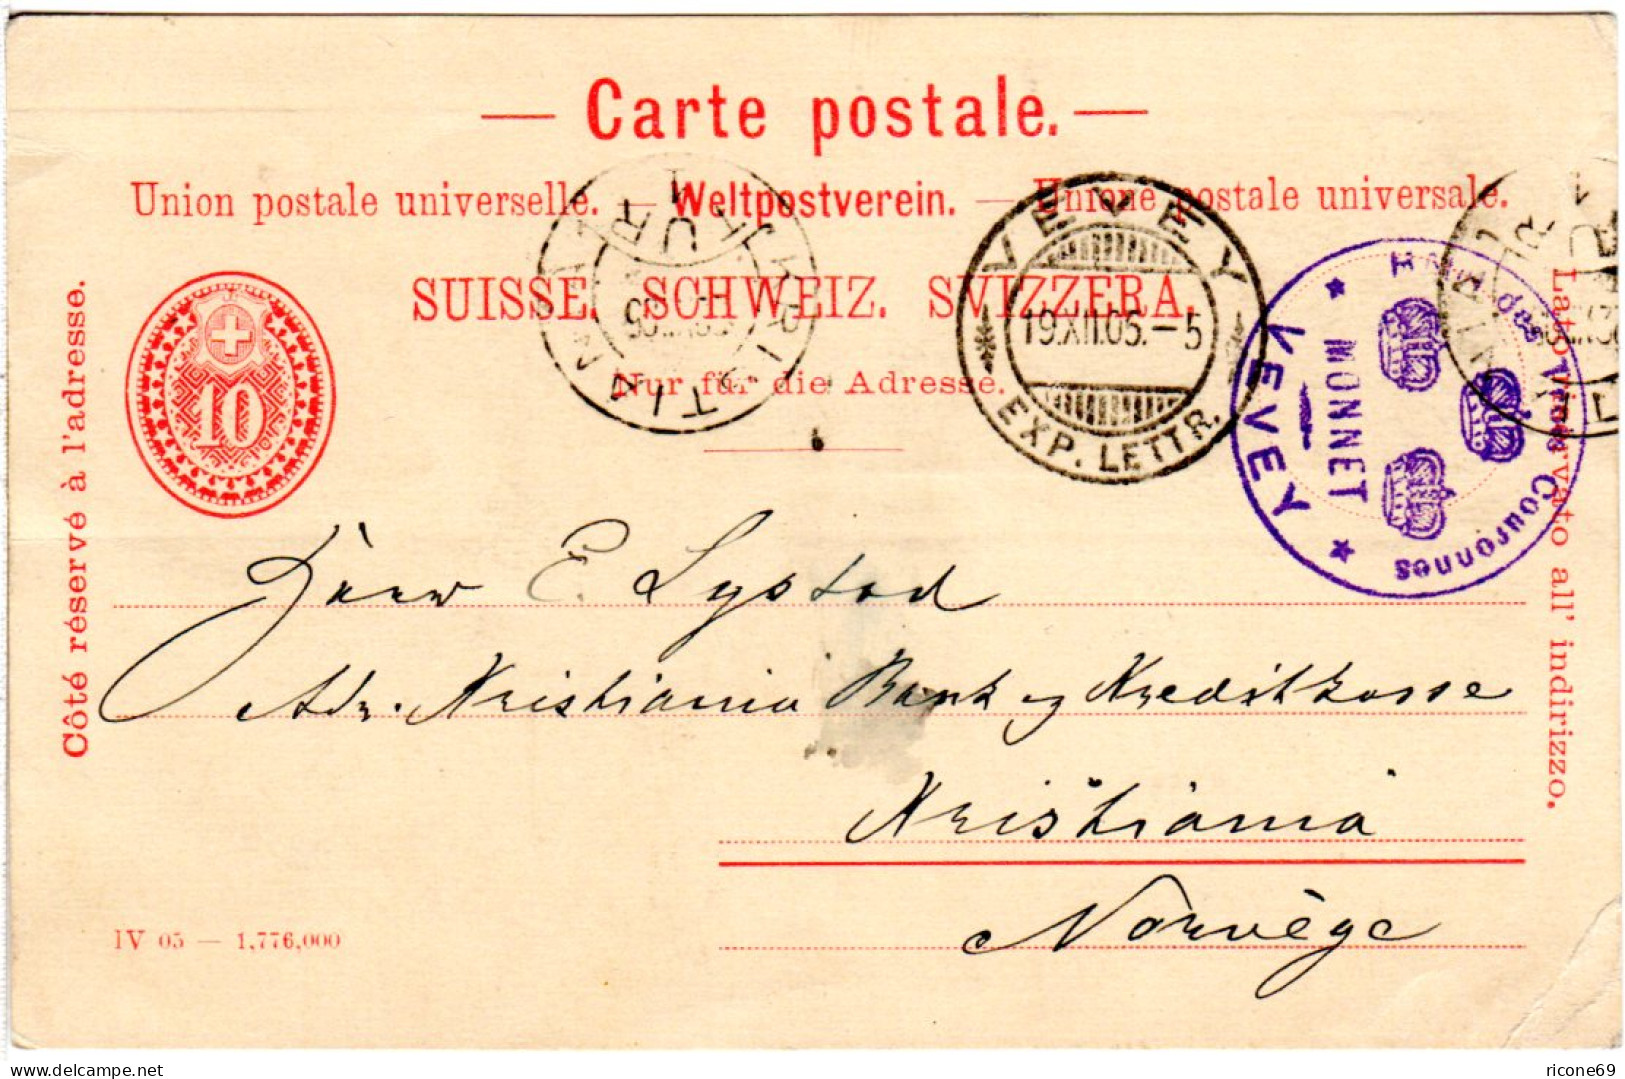 — Carte postale. —
Union postale universelle. — Weltpostverein. — Unione postale universale.
SUISSE. SCHWEIZ. SVIZZERA.
Nur für die Adresse.
Côté réservé à l'adresse.
Lato riservato all' indirizzo.
10
VEVEY
19.XII.05.-5
EXP. LETTR.
KRISTIANIA
TUR
Hôtel des Trois Couronnes
MONNET
VEVEY
Herr E. Lystad
Adr. Kristiania Bank og Kreditkasse
Kristiania
Norvège
IV 05 — 1,776,000
ricone69